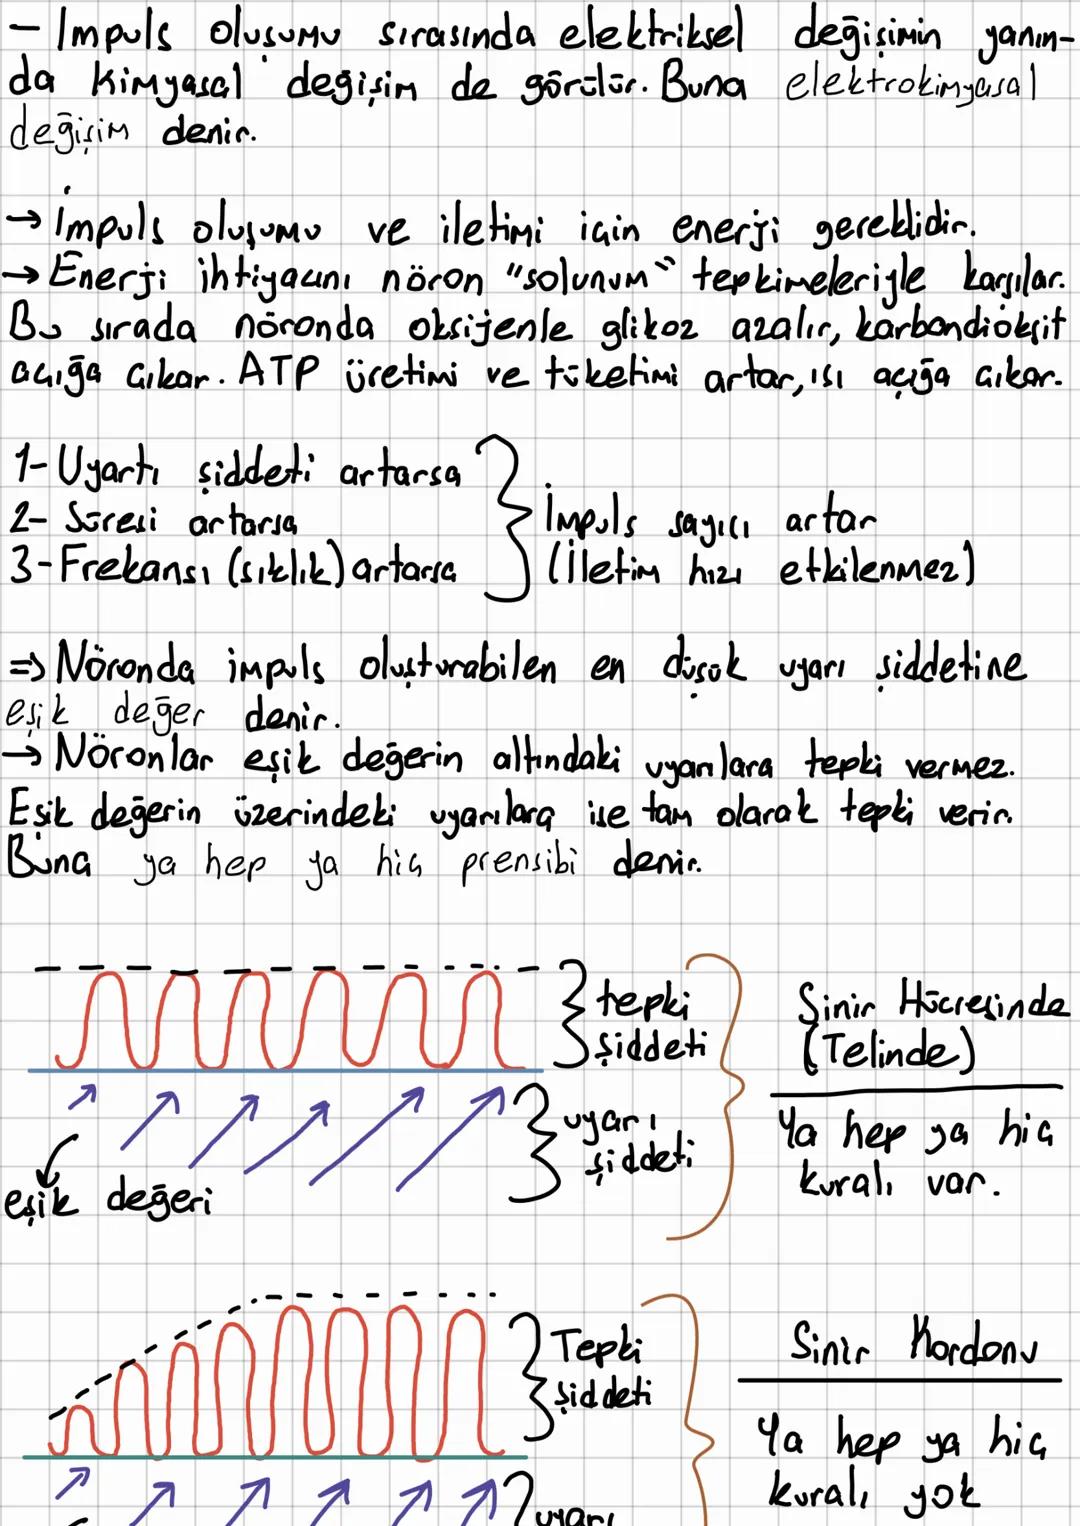 - Impuls oluşumu sırasında elektriksel değişimin yanın-
da kimyasal değişim de görülür. Buna elektrokimyasal
değişim denir.
→ İmpuls oluşumu ve iletimi için enerji gereklidir.
→ Enerji ihtiyacını nöron "solunum" tepkimeleriyle karşılar.
Bu sırada nöronda oksijenle glikoz azalır, karbondioksit
açığa çıkar. ATP üretimi ve tüketimi artar, ısı açığa çıkar.
1- Uyartı şiddeti artarsa
2- Süresi artarsa
3- Frekansı (sıklık) artarsa
İmpuls sayısı artar
(İletim hızı etkilenmez)
=> Nöronda impuls oluşturabilen en düşük uyarı şiddetine
eşik değer denir.
→ Nöronlar eşik değerin altındaki uyarılara tepki vermez.
Eşik değerin üzerindeki uyarılara ise tam olarak tepki verir.
Buna ya hep ya hiç prensibi denir.
tepki
şiddeti
uyarı
şiddeti
eşik değeri
Sinir Hücresinde
(Telinde)
Ya hep ya hiç
kuralı var.
Tepki
şiddeti
uyarı
Sinir Kordonu
Ya hep ya hiç
kuralı yok